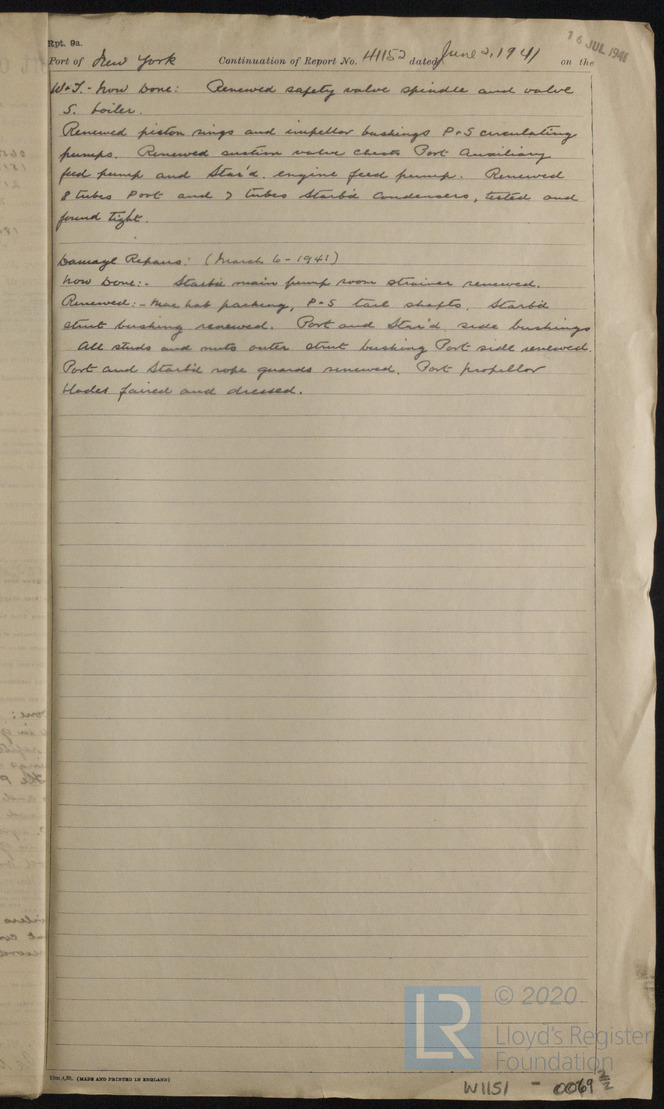 Rpt. 9a.
16 JUL 1941
Port of New York Continuation of Report No. 41152 dated June 2, 1941 on the
W+T.- Now Done: Renewed safety valve spindle and valve
S. boiler.
Renewed piston rings and impellor bushings P+S circulating
pumps. Renewed suction valve chests Port Auxiliary
feed pump and Star'd. engine feed pump. Renewed
8 tubes Port and 7 tubes Starb'd Condensers, tested and
found tight.
Damage Repairs: (March 6-1941)
Now Done:- Starb'd main pump room strainer renewed.
Renewed:- packing, P+S tail shafts. Starb'd
strut bushing renewed. Port and Star'd. side bushings
All studs and nuts outer strut bushing Port side renewed.
Port and Starb'd rope guards renewed. Port propellor
blades faired and dressed.
(MADE AND PRINTED IN ENGLAND)
LR © 2020
Lloyd's Register
Foundation
W1151 - 0069 2/2